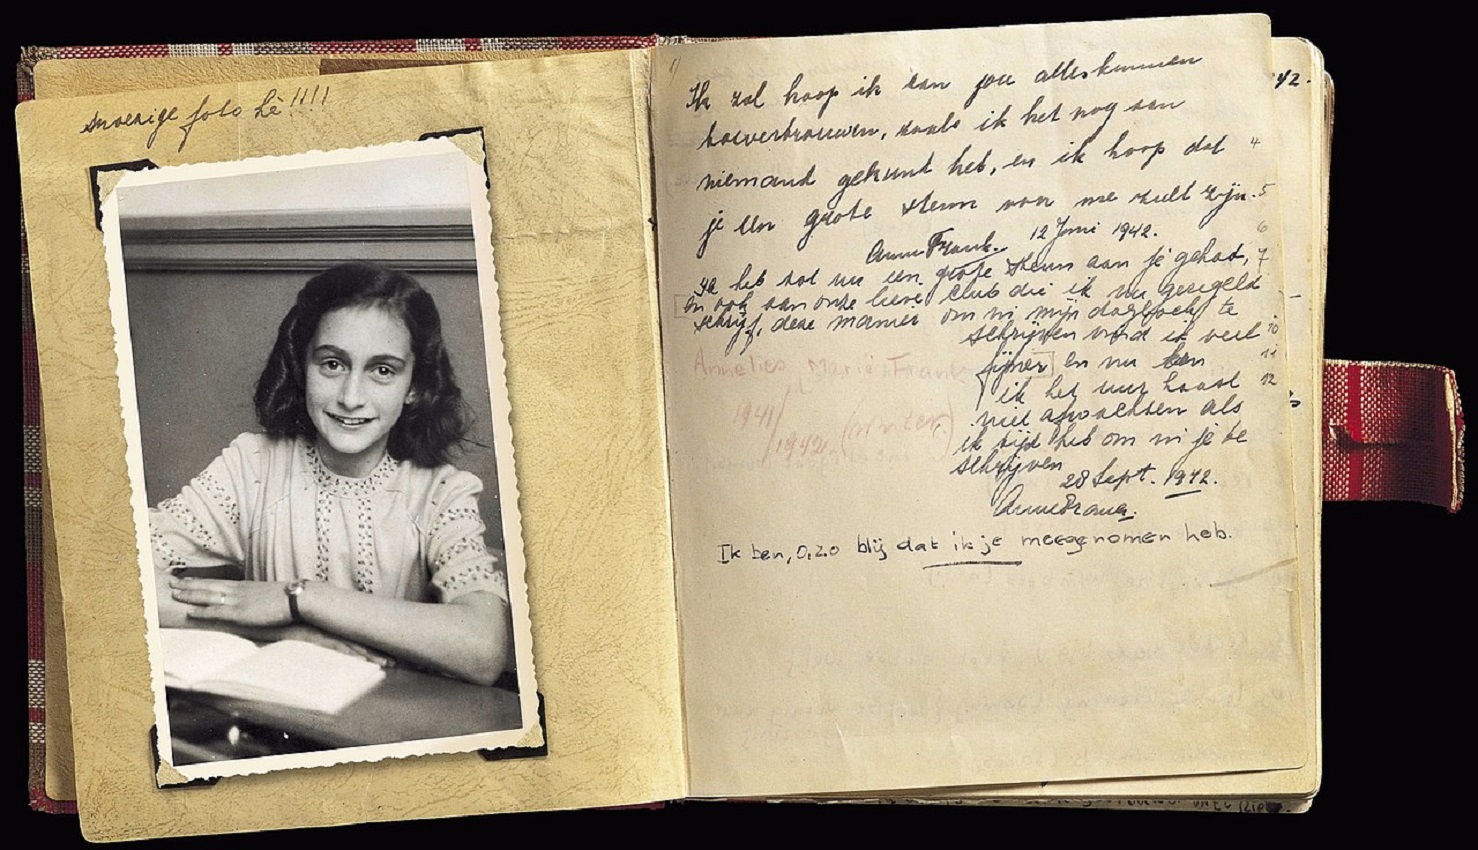 snoezige foto hè!!!!
Ik zal hoop ik aan jou alles kunnen
toevertrouwen, zoals ik het nog aan
niemand gekund heb, en ik hoop dat
je een grote steun voor me zult zijn.
Anne Frank. 12 Juni 1942.
Ik heb tot nu een grote steun aan je gehad,
en ook aan onze lieve club die ik nu geregeld
schrijf, deze manier om in mijn dagboek te
schrijven vind ik veel
fijner en nu kan
ik het uur haast
niet afwachten als
ik tijd heb om in je te
schrijven
28 Sept. 1942.
Anne Frank.
Ik ben, o, zo blij dat ik je meegenomen heb.
Annelies Marie Frank
1941/
1942.
42.
4
5
6
7
10
11
12